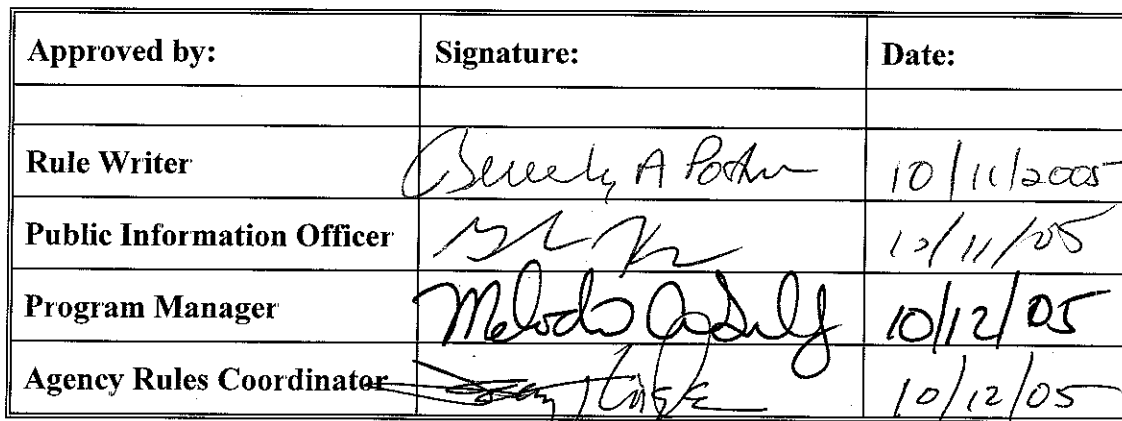 Approved by: Signature: Date:
Rule Writer Beverly A 10/11/2005
Public Information Officer 10/11/05
Program Manager 10/12/05
Agency Rules Coordinator 10/12/05